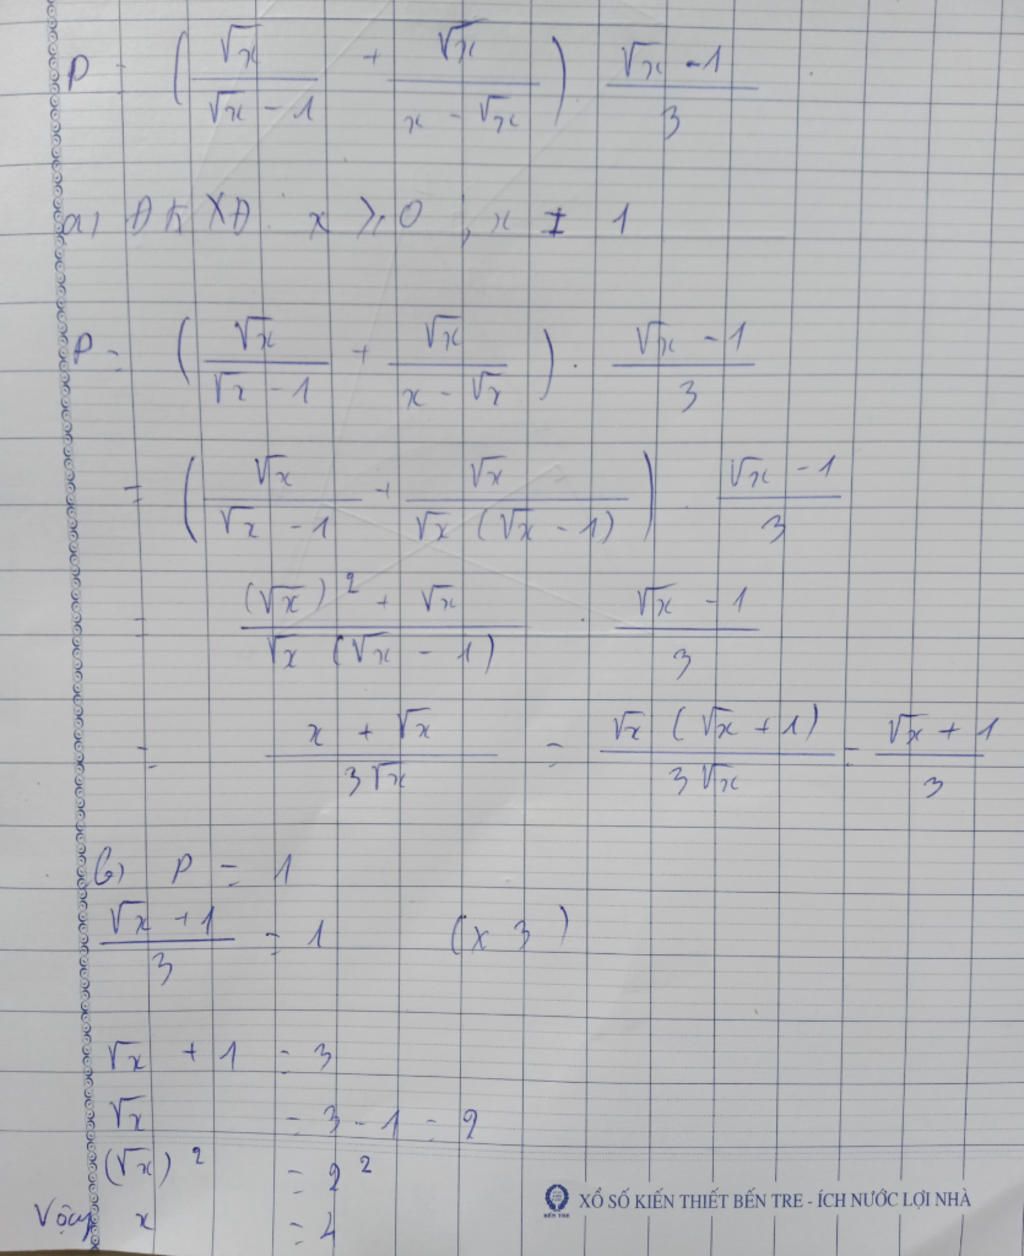 P = ( √x / (√x - 1) + √x / (x - √x) ) (√x - 1) / 3
a) ĐKXĐ: x ≥ 0 ; x ≠ 1
P = ( √x / (√x - 1) + √x / (x - √x) ) . (√x - 1) / 3
= ( √x / (√x - 1) + √x / (√x (√x - 1)) ) . (√x - 1) / 3
= ((√x)² + √x) / (√x (√x - 1)) . (√x - 1) / 3
= (x + √x) / (3√x) = (√x (√x + 1)) / (3√x) = (√x + 1) / 3
b) P = 1
(√x + 1) / 3 = 1 (x 3)
√x + 1 = 3
√x = 3 - 1 = 2
(√x)² = 2²
Vậy x = 4
BẾN TRE XỔ SỐ KIẾN THIẾT BẾN TRE - ÍCH NƯỚC LỢI NHÀ